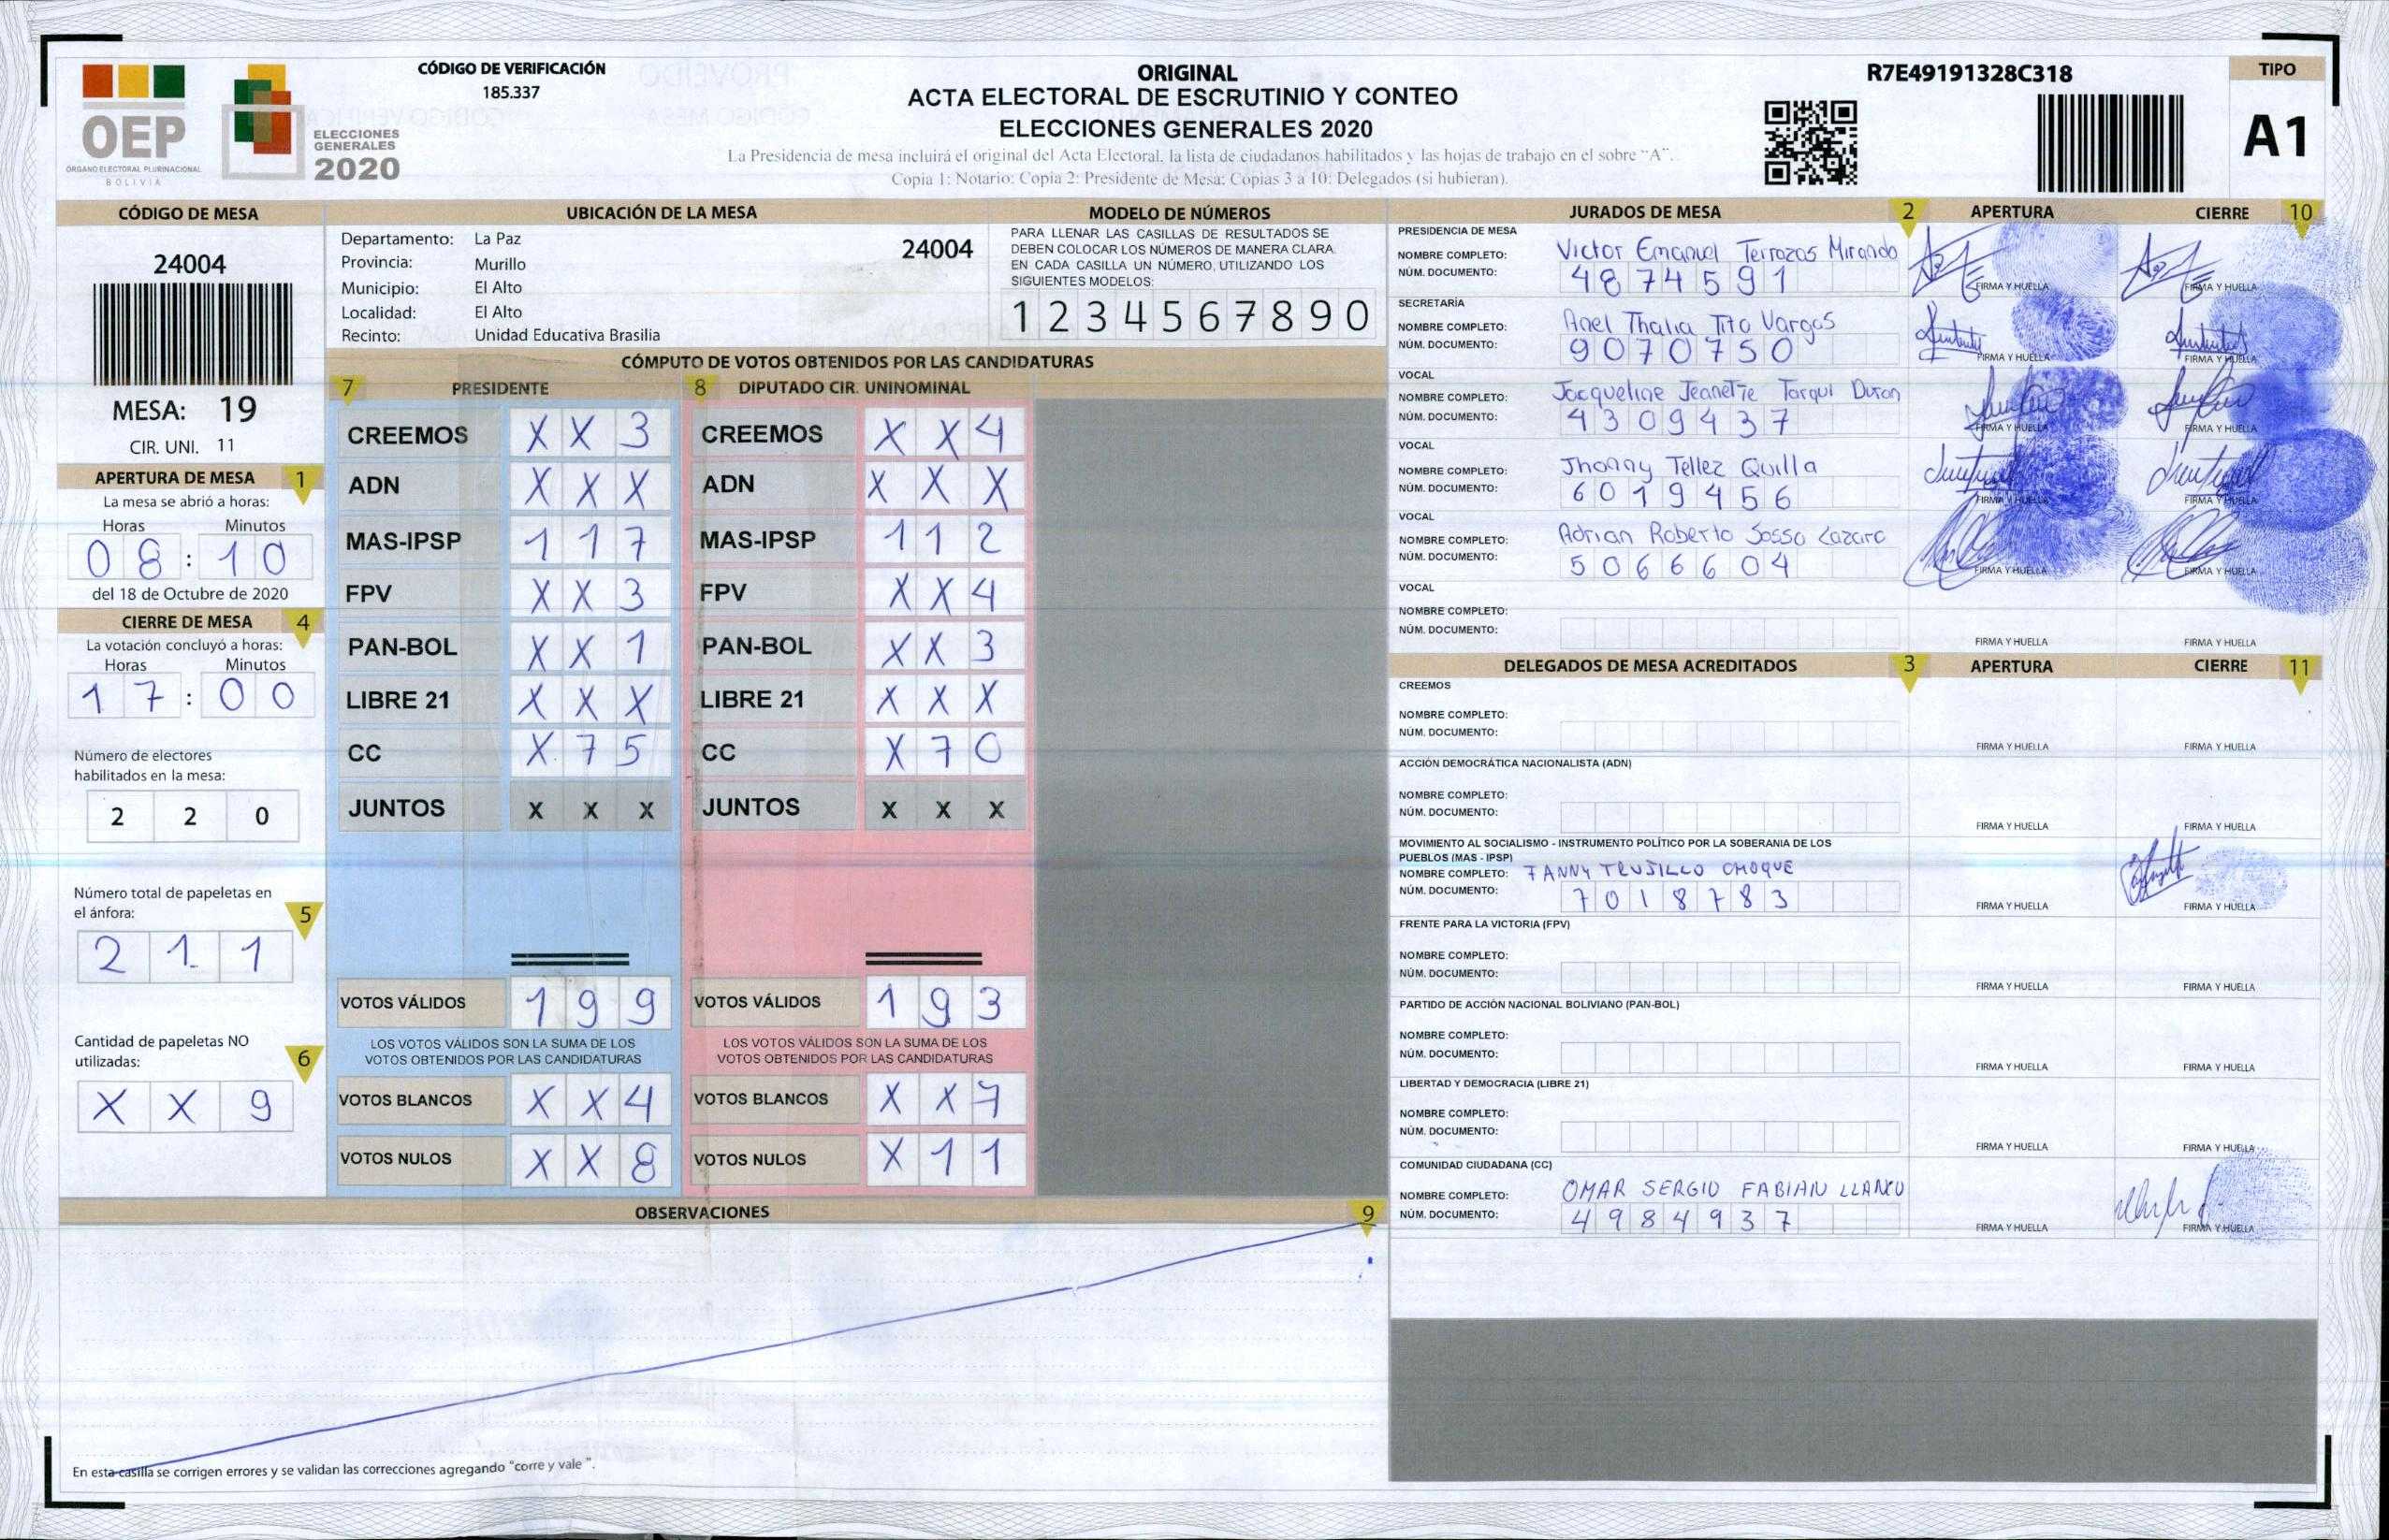 OEP
ÓRGANO ELECTORAL PLURINACIONAL
BOLIVIA
ELECCIONES
GENERALES
2020
CÓDIGO DE VERIFICACIÓN
185.337
ORIGINAL
ACTA ELECTORAL DE ESCRUTINIO Y CONTEO
ELECCIONES GENERALES 2020
La Presidencia de mesa incluirá el original del Acta Electoral, la lista de ciudadanos habilitados y las hojas de trabajo en el sobre "A".
Copia 1: Notario; Copia 2: Presidente de Mesa; Copias 3 a 10: Delegados (si hubieran).
R7E49191328C318
TIPO
A1
CÓDIGO DE MESA
24004
MESA: 19
CIR. UNI. 11
APERTURA DE MESA 1
La mesa se abrió a horas:
Horas Minutos
08:10
del 18 de Octubre de 2020
CIERRE DE MESA 4
La votación concluyó a horas:
Horas Minutos
17:00
Número de electores
habilitados en la mesa:
2 2 0
Número total de papeletas en
el ánfora: 5
2 1 1
Cantidad de papeletas NO
utilizadas: 6
X X 9
UBICACIÓN DE LA MESA
Departamento: La Paz 24004
Provincia: Murillo
Municipio: El Alto
Localidad: El Alto
Recinto: Unidad Educativa Brasilia
MODELO DE NÚMEROS
PARA LLENAR LAS CASILLAS DE RESULTADOS SE
DEBEN COLOCAR LOS NÚMEROS DE MANERA CLARA.
EN CADA CASILLA UN NÚMERO, UTILIZANDO LOS
SIGUIENTES MODELOS:
1 2 3 4 5 6 7 8 9 0
CÓMPUTO DE VOTOS OBTENIDOS POR LAS CANDIDATURAS
7 PRESIDENTE 8 DIPUTADO CIR. UNINOMINAL
CREEMOS X X 3 CREEMOS X X 4
ADN X X X ADN X X X
MAS-IPSP 1 1 7 MAS-IPSP 1 1 2
FPV X X 3 FPV X X 4
PAN-BOL X X 1 PAN-BOL X X 3
LIBRE 21 X X X LIBRE 21 X X X
CC X 7 5 CC X 7 0
JUNTOS X X X JUNTOS X X X
VOTOS VÁLIDOS 1 9 9 VOTOS VÁLIDOS 1 9 3
LOS VOTOS VÁLIDOS SON LA SUMA DE LOS LOS VOTOS VÁLIDOS SON LA SUMA DE LOS
VOTOS OBTENIDOS POR LAS CANDIDATURAS VOTOS OBTENIDOS POR LAS CANDIDATURAS
VOTOS BLANCOS X X 4 VOTOS BLANCOS X X 7
VOTOS NULOS X X 8 VOTOS NULOS X 1 1
OBSERVACIONES 9
En esta casilla se corrigen errores y se validan las correcciones agregando "corre y vale ".
JURADOS DE MESA 2 APERTURA CIERRE 10
PRESIDENCIA DE MESA
NOMBRE COMPLETO: Victor Emanuel Terrazas Miranda
NÚM. DOCUMENTO: 4874591 FIRMA Y HUELLA FIRMA Y HUELLA
SECRETARÍA
NOMBRE COMPLETO: Anel Thalia Tito Vargas
NÚM. DOCUMENTO: 9070750 FIRMA Y HUELLA FIRMA Y HUELLA
VOCAL
NOMBRE COMPLETO: Jacqueline Jeanette Tarqui Duran
NÚM. DOCUMENTO: 4309437 FIRMA Y HUELLA FIRMA Y HUELLA
VOCAL
NOMBRE COMPLETO: Jhonny Tellez Quilla
NÚM. DOCUMENTO: 6019456 FIRMA Y HUELLA FIRMA Y HUELLA
VOCAL
NOMBRE COMPLETO: Adrian Roberto Sossa Lazaro
NÚM. DOCUMENTO: 5066604 FIRMA Y HUELLA FIRMA Y HUELLA
VOCAL
NOMBRE COMPLETO:
NÚM. DOCUMENTO: FIRMA Y HUELLA FIRMA Y HUELLA
DELEGADOS DE MESA ACREDITADOS 3 APERTURA CIERRE 11
CREEMOS
NOMBRE COMPLETO:
NÚM. DOCUMENTO: FIRMA Y HUELLA FIRMA Y HUELLA
ACCIÓN DEMOCRÁTICA NACIONALISTA (ADN)
NOMBRE COMPLETO:
NÚM. DOCUMENTO: FIRMA Y HUELLA FIRMA Y HUELLA
MOVIMIENTO AL SOCIALISMO - INSTRUMENTO POLÍTICO POR LA SOBERANIA DE LOS
PUEBLOS (MAS - IPSP)
NOMBRE COMPLETO: FANNY TRUJILLO CHOQUE
NÚM. DOCUMENTO: 7018783 FIRMA Y HUELLA FIRMA Y HUELLA
FRENTE PARA LA VICTORIA (FPV)
NOMBRE COMPLETO:
NÚM. DOCUMENTO: FIRMA Y HUELLA FIRMA Y HUELLA
PARTIDO DE ACCIÓN NACIONAL BOLIVIANO (PAN-BOL)
NOMBRE COMPLETO:
NÚM. DOCUMENTO: FIRMA Y HUELLA FIRMA Y HUELLA
LIBERTAD Y DEMOCRACIA (LIBRE 21)
NOMBRE COMPLETO:
NÚM. DOCUMENTO: FIRMA Y HUELLA FIRMA Y HUELLA
COMUNIDAD CIUDADANA (CC)
NOMBRE COMPLETO: OMAR SERGIO FABIAN LLANCO
NÚM. DOCUMENTO: 4984937 FIRMA Y HUELLA FIRMA Y HUELLA